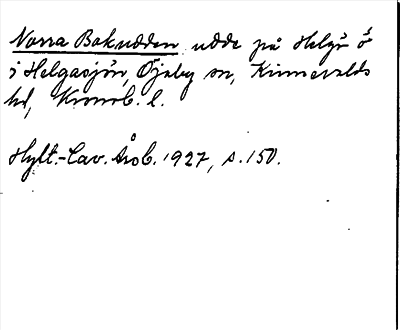 Norra Bokudden udde på Helgö ö
i Helgasjön, Öjaby sn, Kinnevalds
hd, Kronob. l.
Hylt.-Cav. årsb. 1927, s. 150.